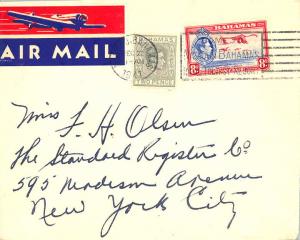 AIR MAIL
BAHAMAS
TWO PENCE
BAHAMAS
8d
Miss F. H. Olsen
The Standard Register Co
595 Madison Avenue
New York City